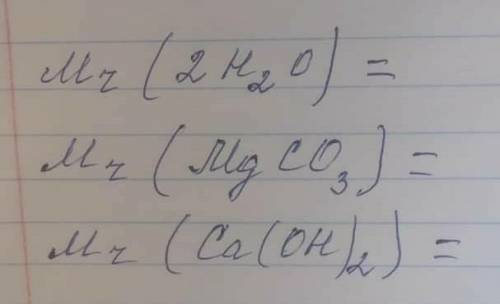 Mr (2H₂O) =
Mr (MgCO₃) =
Mr (Ca(OH)₂) =